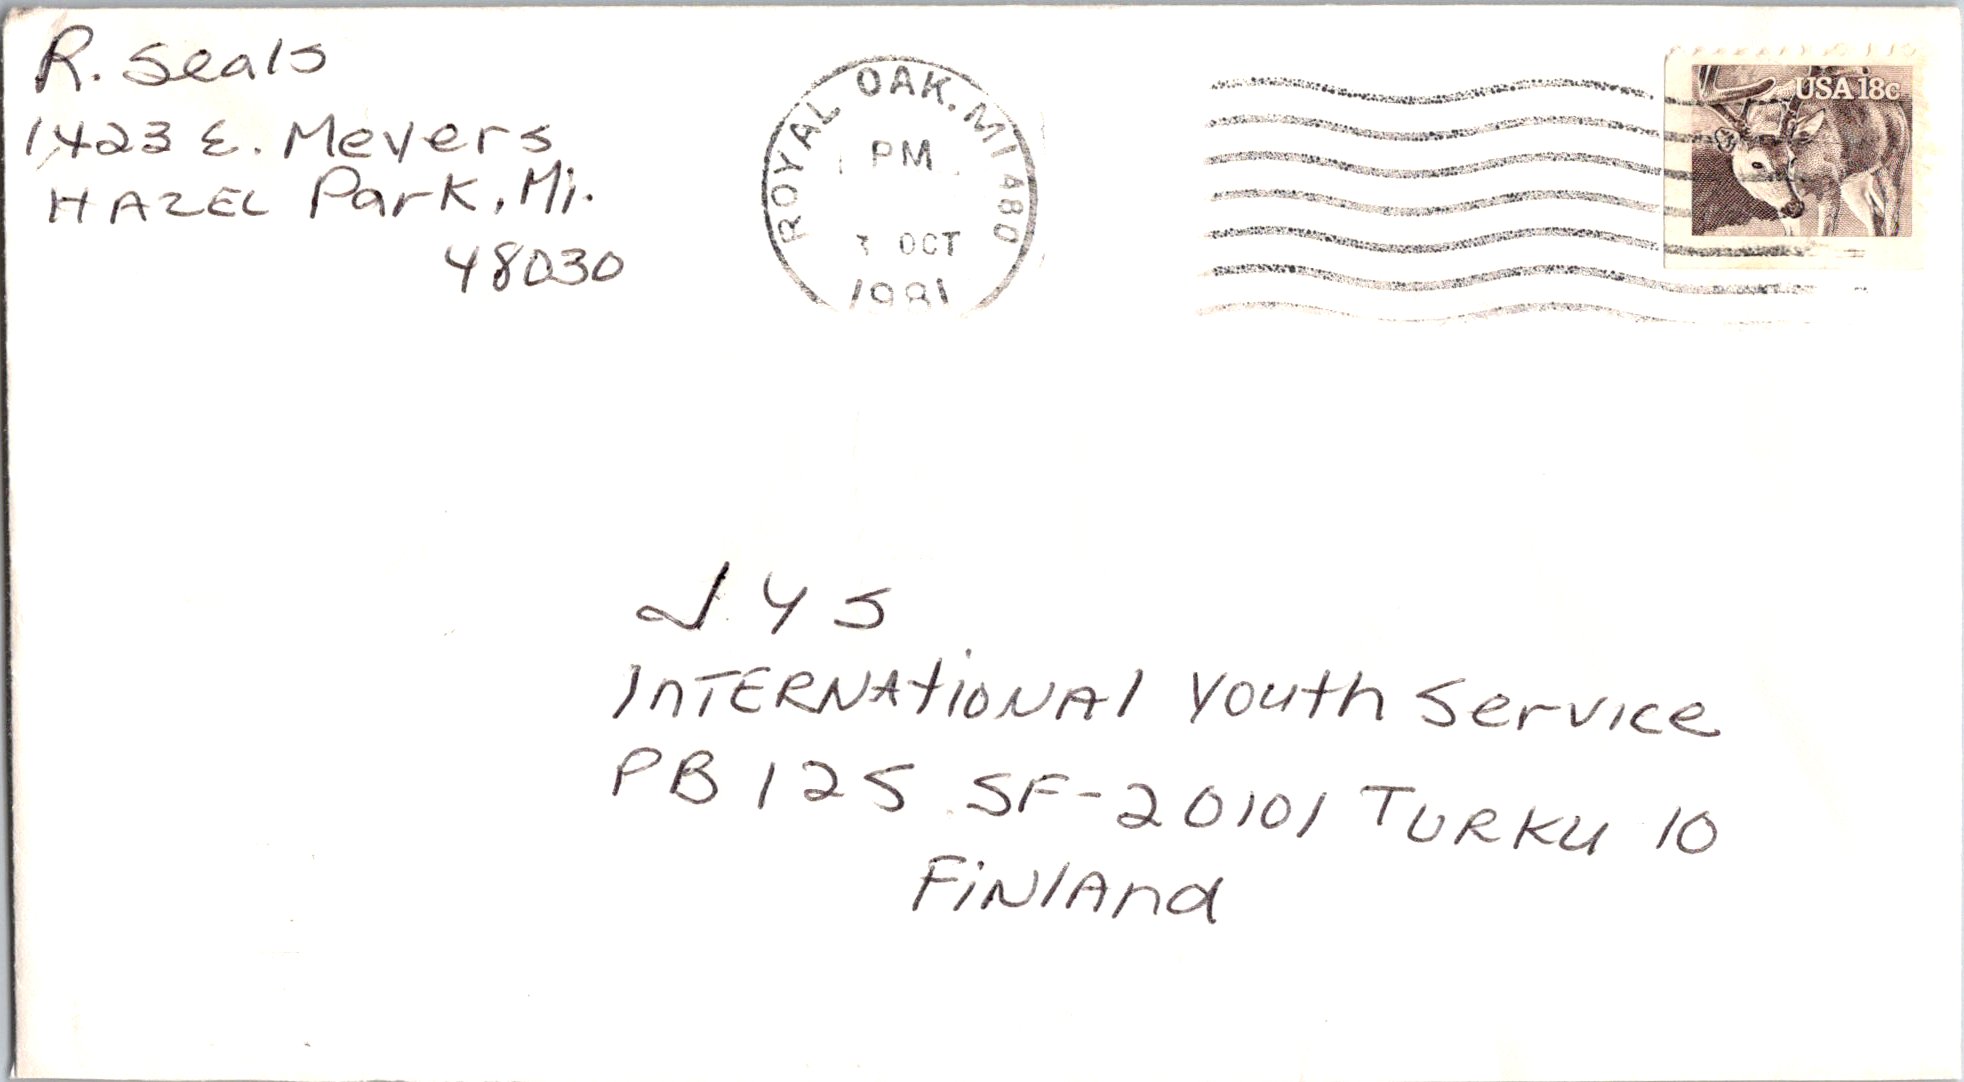 R. Seals
1423 E. Meyers
HAZEL Park, Mi.
48030
ROYAL OAK, MI 480
PM
OCT
1981
USA 18c
IYS
INTERNATIONAL Youth Service
PB 125 SF-20101 TURKU 10
FINLAnd